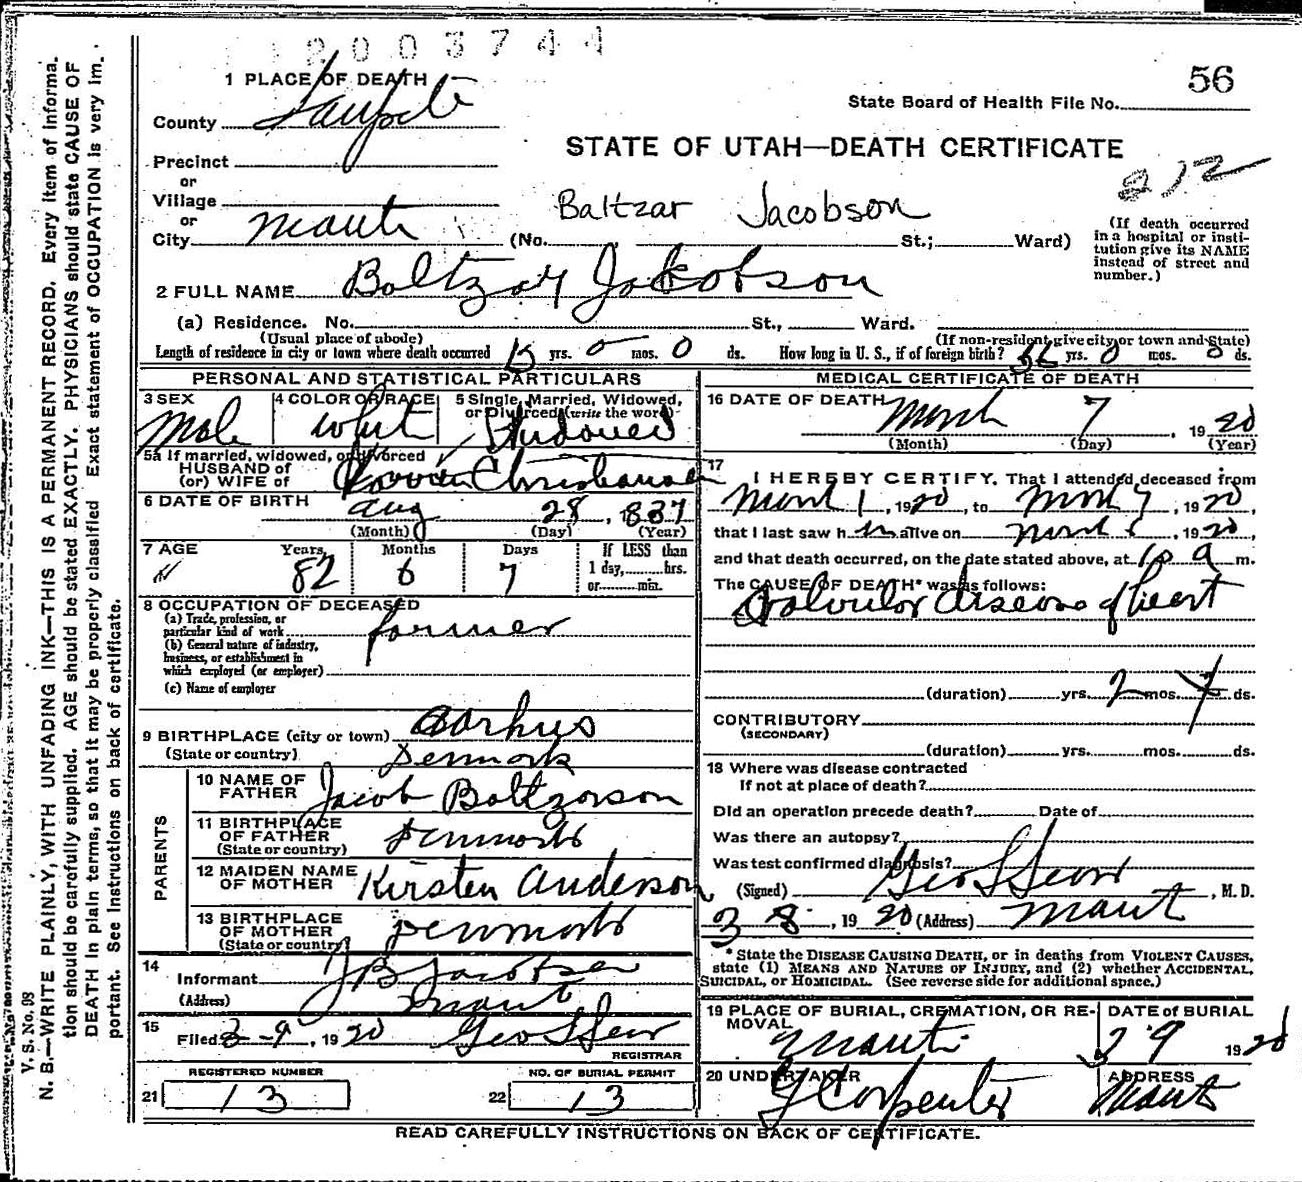 2003744
56
1 PLACE OF DEATH
State Board of Health File No.
County Sanpete
STATE OF UTAH—DEATH CERTIFICATE
Precinct
212
or
Village
Baltzar Jacobson
or
City Manti (No. St.; Ward)
(If death occurred in a hospital or insti-
tution give its NAME instead of street and number.)
2 FULL NAME Baltzar Jakobson
(a) Residence. No. St., Ward.
(Usual place of abode) (If non-resident give city or town and State)
Length of residence in city or town where death occurred yrs. 0 mos. 0 ds. How long in U. S., if of foreign birth? yrs. 0 mos. 0 ds.
PERSONAL AND STATISTICAL PARTICULARS
3 SEX 4 COLOR OR RACE 5 Single, Married, Widowed,
or Divorced (write the word)
Male White Widowed
5a If married, widowed, or divorced
HUSBAND of
(or) WIFE of Christiansen
6 DATE OF BIRTH Aug 28, 1837
(Month) (Day) (Year)
7 AGE Years Months Days If LESS than
82 6 7 1 day, hrs.
or min.
8 OCCUPATION OF DECEASED
(a) Trade, profession, or
particular kind of work farmer
(b) General nature of industry,
business, or establishment in
which employed (or employer)
(c) Name of employer
9 BIRTHPLACE (city or town) Aarhus
(State or country) Denmark
PARENTS
10 NAME OF
FATHER Jacob Baltzorson
11 BIRTHPLACE
OF FATHER
(State or country) Denmark
12 MAIDEN NAME
OF MOTHER Kirsten Anderson
13 BIRTHPLACE
OF MOTHER
(State or country) Denmark
14
Informant J B Jacobsen
(Address) Manti
15
Filed 3-9, 1920 Geo L Sears
REGISTRAR
REGISTERED NUMBER NO. OF BURIAL PERMIT
21 13 22 13
MEDICAL CERTIFICATE OF DEATH
16 DATE OF DEATH March 7, 1920
(Month) (Day) (Year)
17
I HEREBY CERTIFY, That I attended deceased from
March 1, 1920, to March 7, 1920,
that I last saw him alive on March 1920,
and that death occurred, on the date stated above, at 10 a m.
The CAUSE OF DEATH* was as follows:
Valvular disease of heart
(duration) yrs. 2 mos. ds.
CONTRIBUTORY
(SECONDARY)
(duration) yrs. mos. ds.
18 Where was disease contracted
If not at place of death?
Did an operation precede death? Date of
Was there an autopsy?
Was test confirmed diagnosis?
(Signed) Geo L Sears, M. D.
3 8, 1920 (Address) Manti
* State the DISEASE CAUSING DEATH, or in deaths from VIOLENT CAUSES,
state (1) MEANS AND NATURE OF INJURY, and (2) whether ACCIDENTAL,
SUICIDAL, or HOMICIDAL. (See reverse side for additional space.)
19 PLACE OF BURIAL, CREMATION, OR RE-
MOVAL DATE of BURIAL
Manti 3 9 1920
20 UNDERTAKER ADDRESS
Carpenter Manti
READ CAREFULLY INSTRUCTIONS ON BACK OF CERTIFICATE.
V. S. No. 98
N. B.—WRITE PLAINLY, WITH UNFADING INK—THIS IS A PERMANENT RECORD. Every item of informa-
tion should be carefully supplied. AGE should be stated EXACTLY. PHYSICIANS should state CAUSE OF
DEATH in plain terms, so that it may be properly classified. Exact statement of OCCUPATION is very im-
portant. See Instructions on back of certificate.